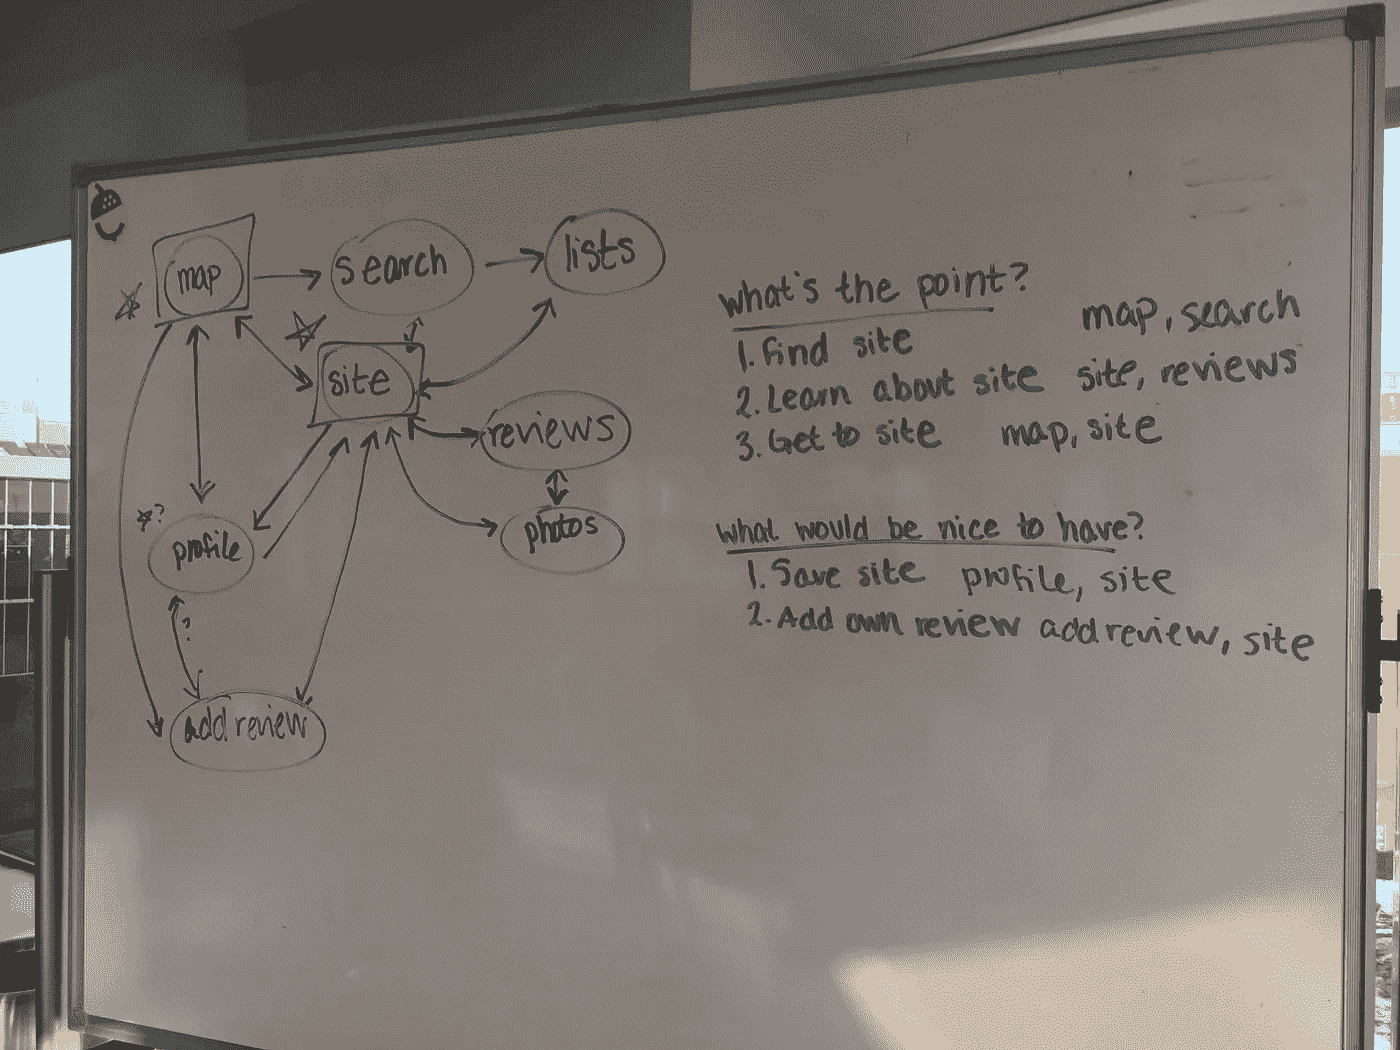 map
search
lists
site
reviews
?
profile
photos
?
add review
what's the point?
1. Find site map, search
2. Learn about site site, reviews
3. Get to site map, site
what would be nice to have?
1. Save site profile, site
2. Add own review add review, site